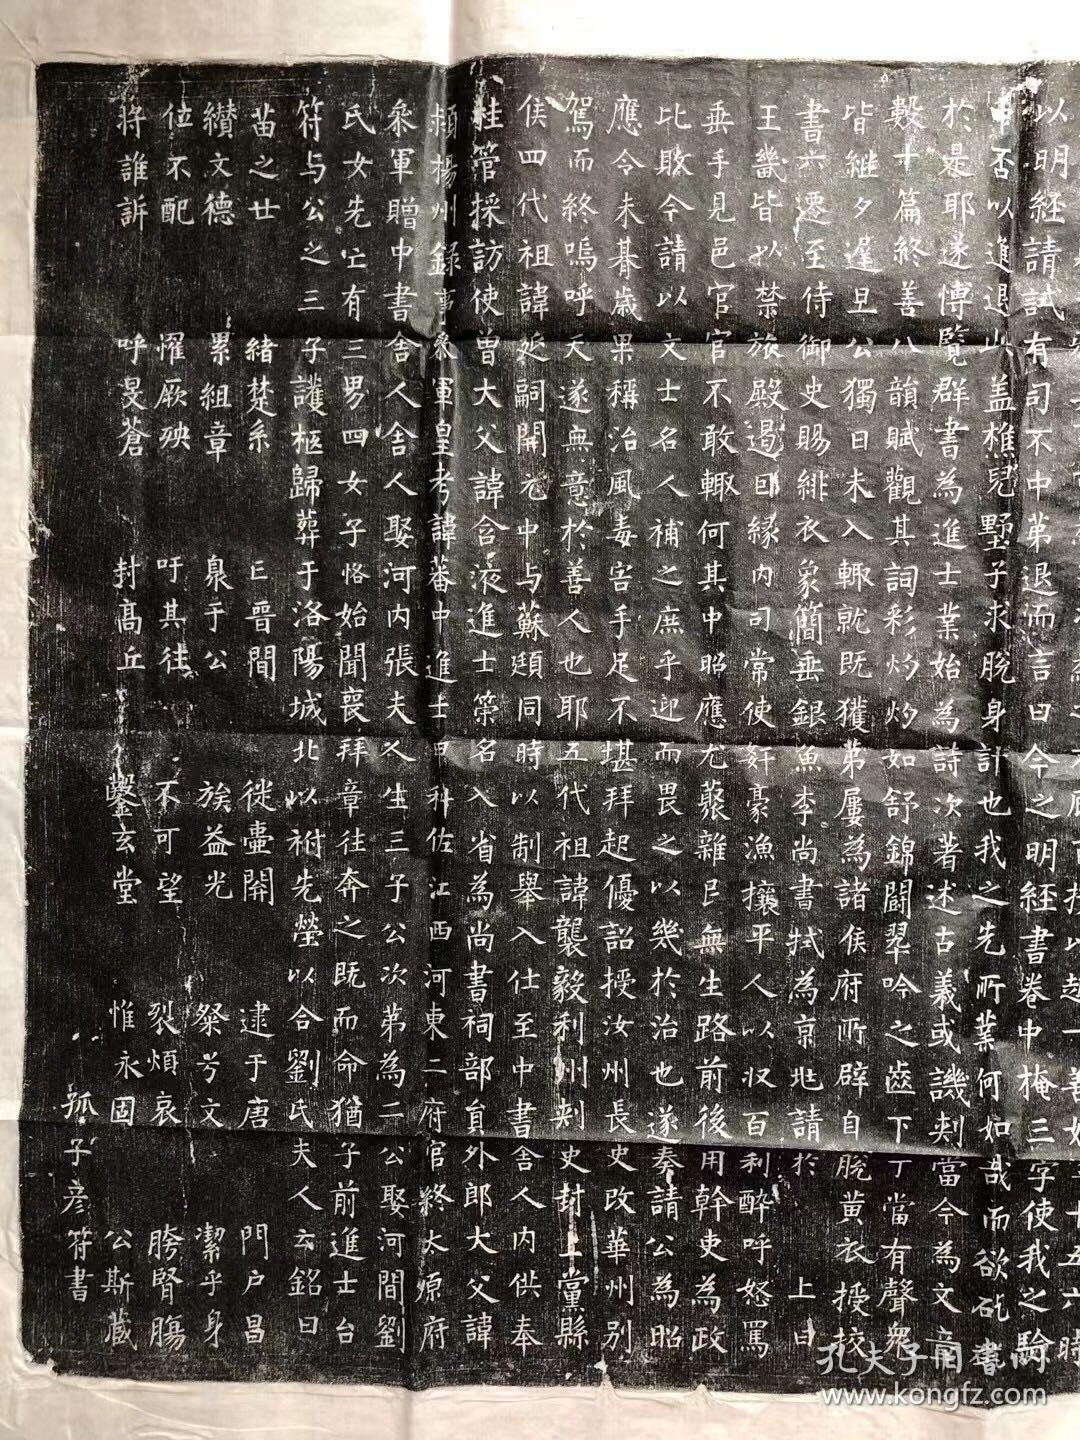 以明經請試有司不中第退而言曰今之明經書卷中掩三字使我之
否以進退蓋樵兒墅子求脫身計也我之先所業何如哉而欲
於是耶遂博覽群書為進士業始為詩次著述古義或譏刺當今為文章
數十篇終善八韻賦觀其詞彩灼灼如舒錦闘翠吟之齒下丁當有聲鬼
皆繼夕達旦公獨日未入輙就既獲第屢為諸侯府所辟自脫黃衣授校
書六遷至侍御史賜緋衣象簡垂銀魚李尚書拭為京兆請於 上曰
王畿皆以禁旅殿邊囙緣内司常使姧豪漁攘平人以収百利酔呼怒罵
垂手見邑官官不敢輙何其中昭應尤蘘雜民無生路前後用幹吏為政
比敗今請以文士名人補之庶乎迎而畏之以幾於治也遂奏請公為昭
應令未朞歲果稱治風毒害手足不堪拜起優詔授汝州長史改華州別
駕而終嗚呼天遂無意於善人也耶五代祖諱襲毅利州刺史封上黨縣
侯四代祖諱延嗣開元中与蘇頲同時以制舉入仕至中書舍人内供奉
桂管採訪使曽大父諱含液進士第名入省為尚書祠部貟外郎大父諱
頍楊州錄事叅軍皇考諱蕃中進士甲科佐江西河東二府官終太原府
叅軍贈中書舍人舍人娶河内張夫人生三子公次第為二公娶河間劉
氏女先亡有三男四女子恪始聞喪拜章往奔之既而命猶子前進士台
符与公之三子護柩歸葬于洛陽城北以祔先塋以合劉氏夫人云銘曰
苗之廿 緒楚系 亡晉間 徙壷關 逮于唐 門户昌
纉文德 累組章 臮于公 族益光 粲兮文 潔乎身
位不配 罹厥殃 吁其往 不可望 裂煩哀 胯腎腸
將誰訴 呼旻蒼 封髙丘 鑿玄堂 惟永固 公斯藏
孤子彦符書
孔夫子旧书网
www.kongfz.com